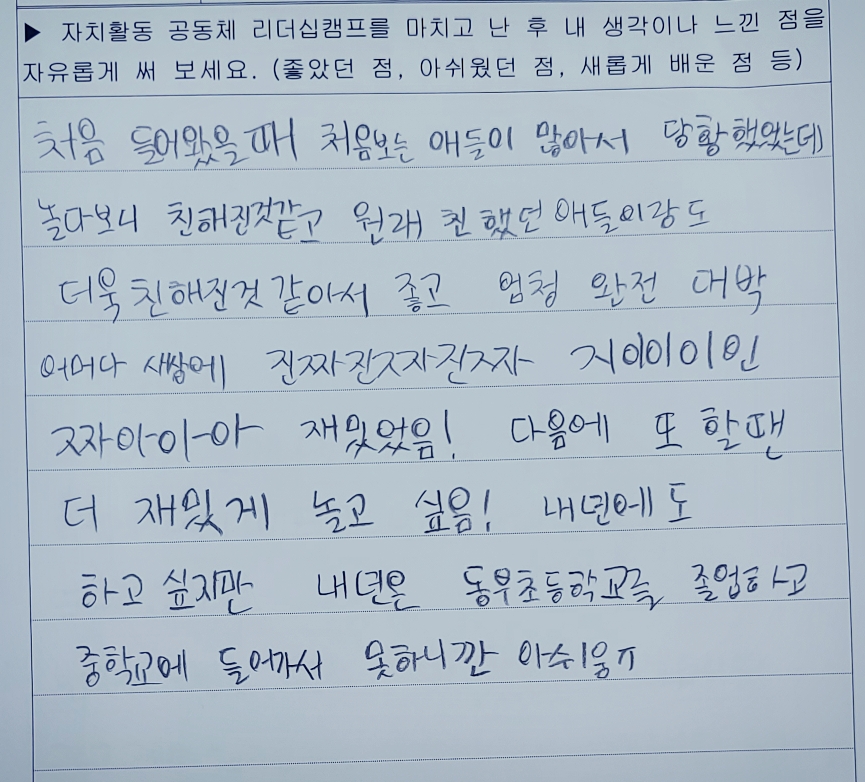 ▶ 자치활동 공동체 리더십캠프를 마치고 난 후 내 생각이나 느낀 점을
자유롭게 써 보세요. (좋았던 점, 아쉬웠던 점, 새롭게 배운 점 등)
처음 들어왔을때 처음보는 애들이 많아서 당황했었는데
놀다보니 친해진것같고 원래 친했던 애들이랑도
더욱 친해진것 같아서 좋고 엄청 완전 대박
어머나 세상에 진짜진짜진짜 지이이이인
짜아아아 재밌었음! 다음에 또 할땐
더 재밌게 놀고 싶음! 내년에도
하고 싶지만 내년은 동부초등학교를 졸업하고
중학교에 들어가서 못하니깐 아쉬움ㅠ